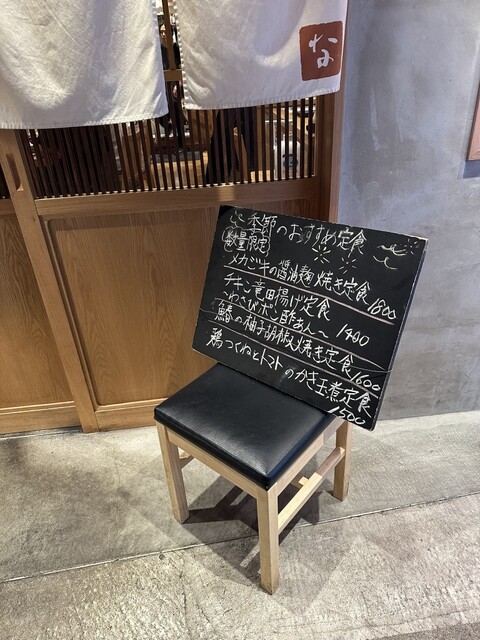 な
季節のおすすめ定食
数量限定
メカジキの醤油麹焼き定食 1800
チキン竜田揚げ定食
〜わさびポン酢あん〜 1400
鰆の柚子胡椒焼き定食 1600
鶏つくねとトマトのかき玉煮定食
1500